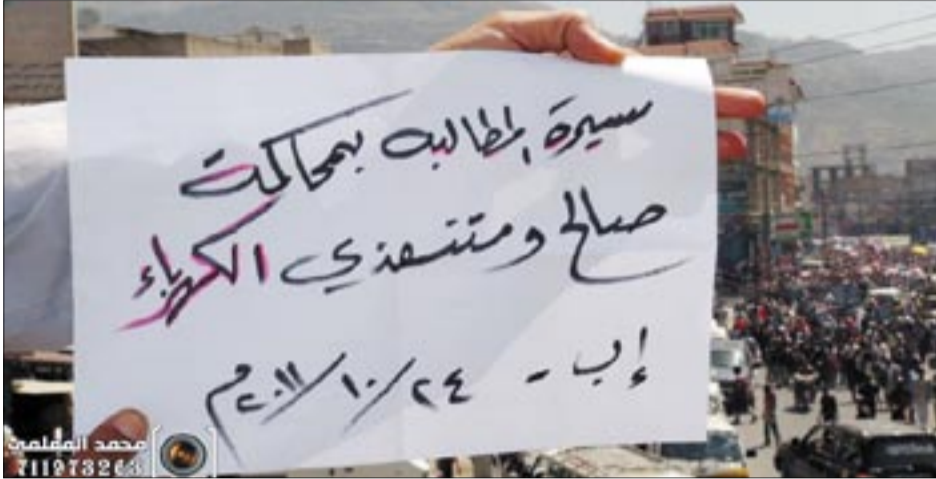 مسيرة المطالبه بمحاكمة
صالح ومتنفذي الكهرباء
إب - ٢٤/١٠/٢٠١١م
محمد المفلحي
711973263